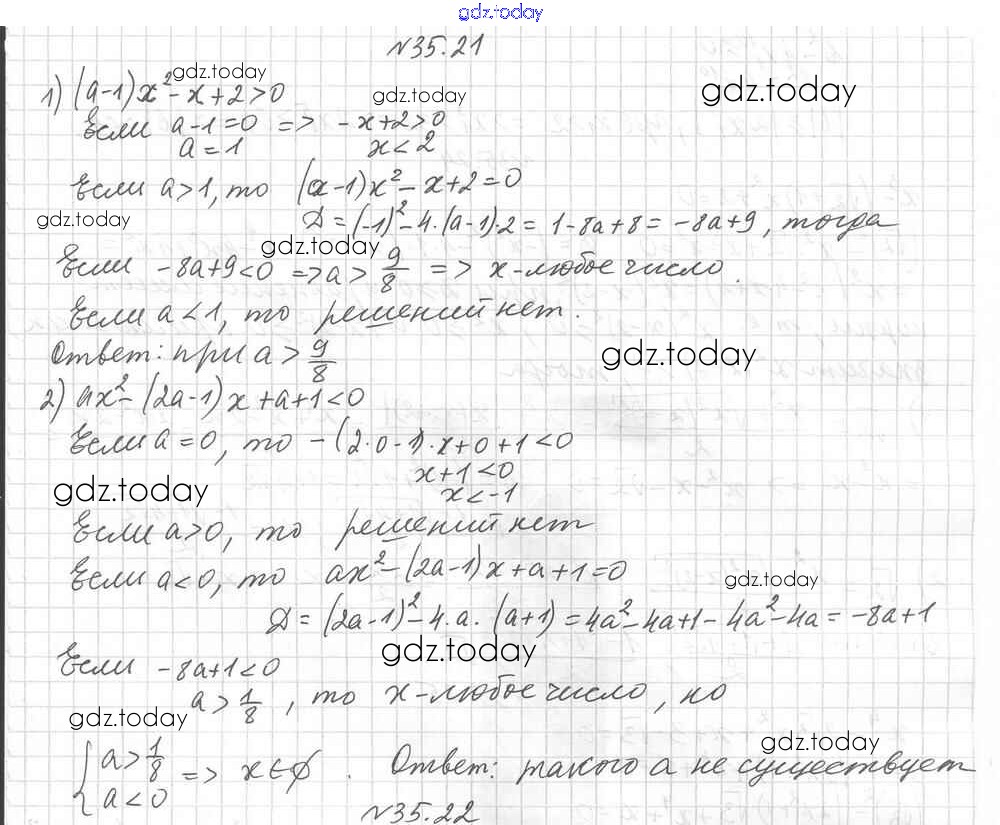 gdz.today
№35.21
1) (a-1)x² - x + 2 > 0
gdz.today
gdz.today
gdz.today
Если a-1 = 0 => -x+2>0
a = 1 x < 2
Если a>1, то (a-1)x² - x + 2 = 0
gdz.today
Д = (-1)² - 4·(a-1)·2 = 1-8a+8 = -8a+9, тогда
gdz.today
Если -8a+9<0 => a > 9/8 => x-любое число.
Если a<1, то решений нет.
Ответ: при a > 9/8
gdz.today
2) ax² - (2a-1)x + a+1 < 0
Если a = 0, то -(2·0-1)·x+0+1<0
x+1<0
gdz.today
x<-1
Если a>0, то решений нет
Если a<0, то ax² - (2a-1)x + a + 1 = 0
gdz.today
Д = (2a-1)² - 4·a·(a+1) = 4a² - 4a+1 - 4a² - 4a = -8a+1
gdz.today
Если -8a+1<0
a > 1/8, то x-любое число, но
gdz.today
gdz.today
{a > 1/8 => x∈∅. Ответ: такого a не существует
a < 0
№35.22